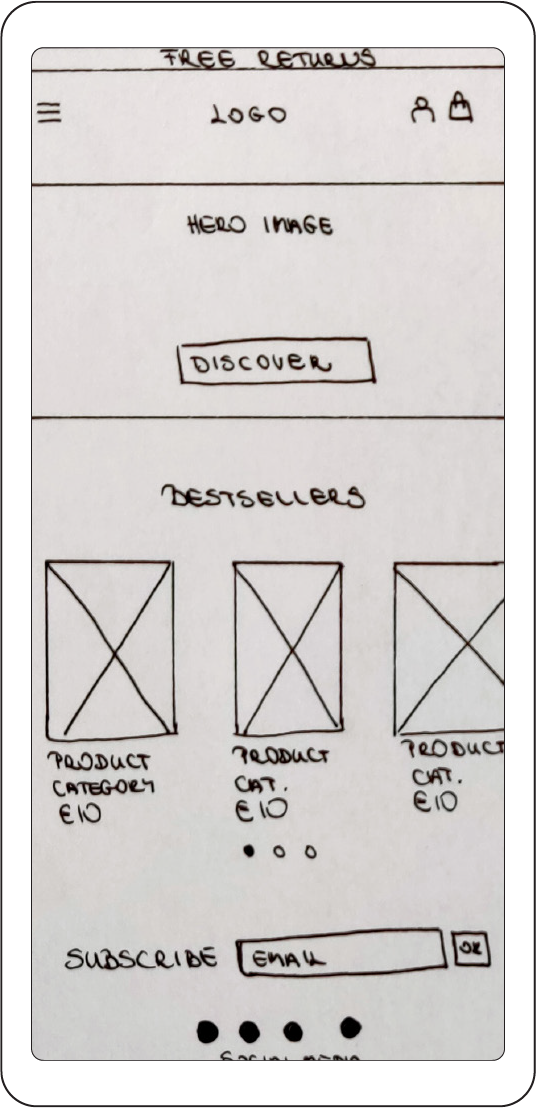 FREE RETURNS
LOGO
HERO IMAGE
DISCOVER
BESTSELLERS
PRODUCT
CATEGORY
€10
PRODUCT
CAT.
€10
PRODUCT
CAT.
€10
SUBSCRIBE EMAIL OK
SOCIAL MEDIA